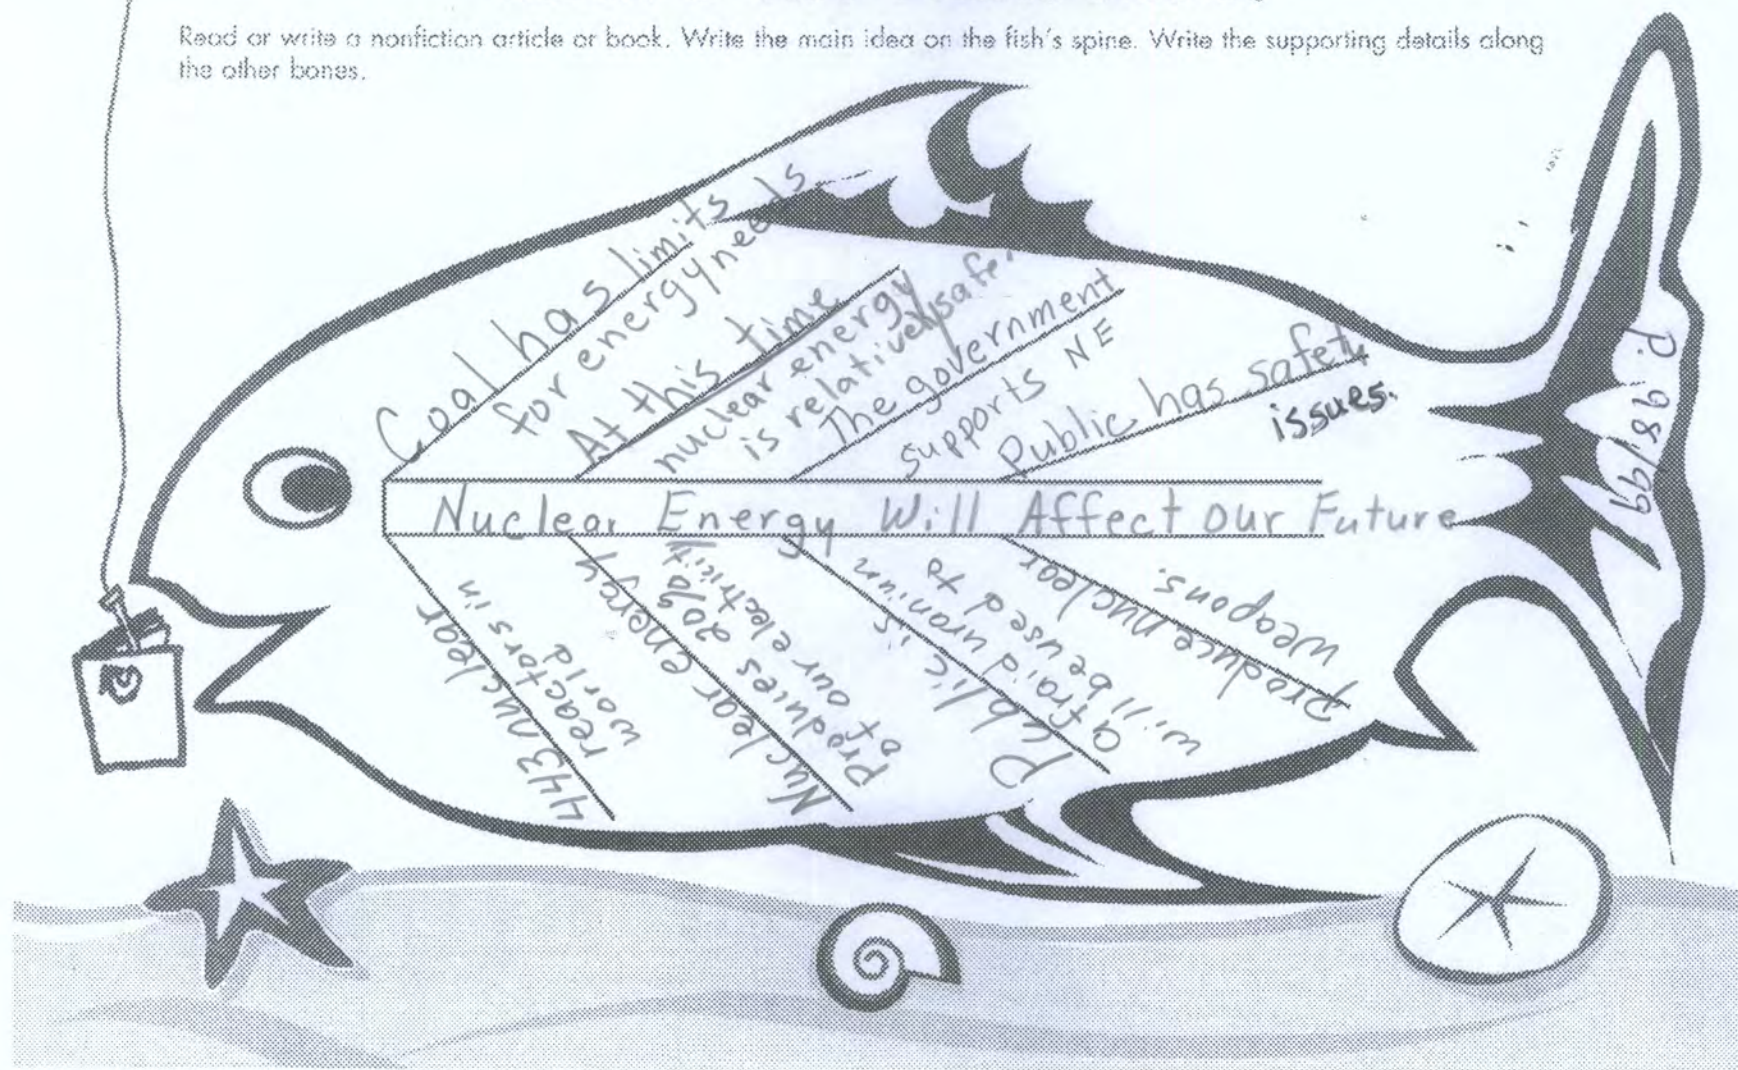 Read or write a nonfiction article or book. Write the main idea on the fish's spine. Write the supporting details along
the other bones.
Coal has limits
for energy needs
At this time
nuclear energy
is relatively safe.
The government
supports NE
Public has safety
issues.
Nuclear Energy Will Affect Our Future
443 nuclear
reactors in
world
Nuclear energy
produces 20%
of our electricity
Public is
afraid uranium
will be used to
produce nuclear
weapons.
p. 98/99